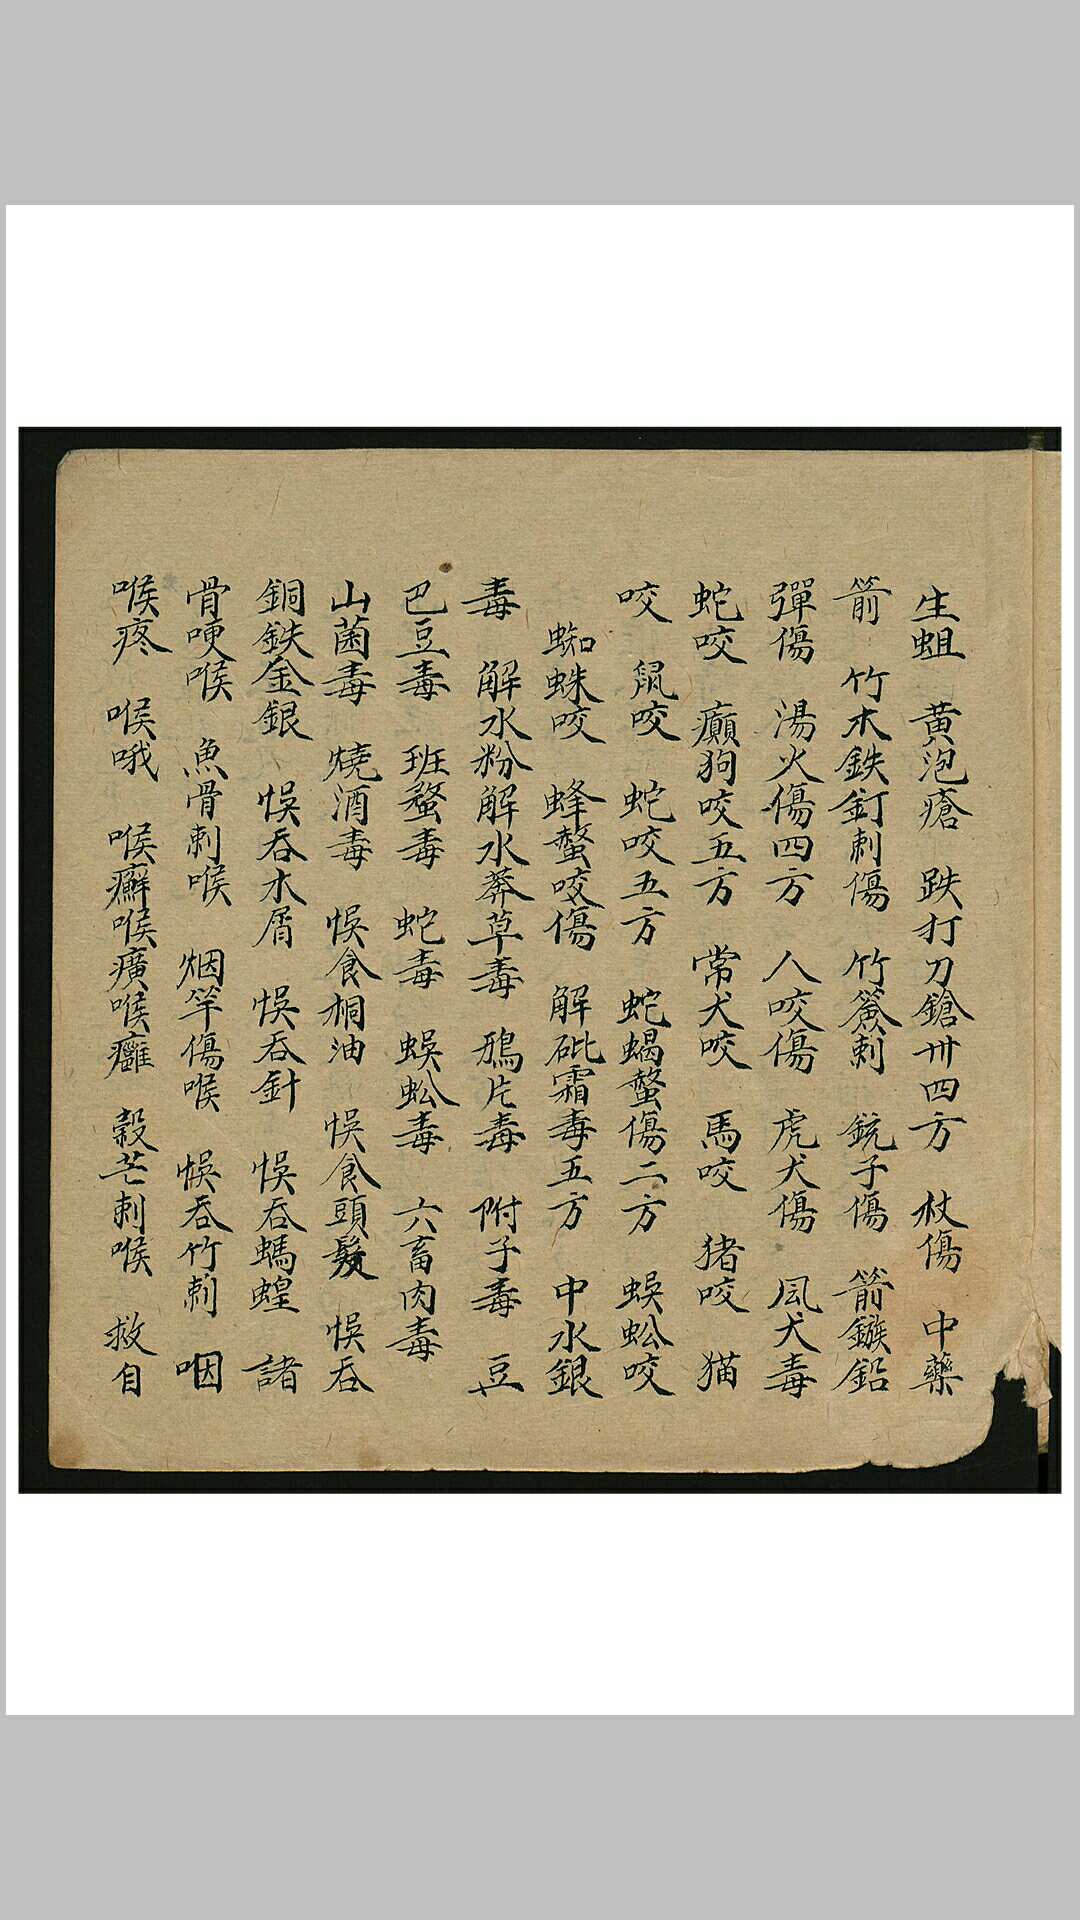 生蛆　黄泡瘡　跌打刀鎗卅四方　杖傷　中藥
箭　竹木鉄釘刺傷　竹簽刺　銃子傷　箭鏃鉛
彈傷　湯火傷四方　人咬傷　虎犬傷　風犬毒
蛇咬　癲狗咬五方　常犬咬　馬咬　猪咬　猫
咬　鼠咬　蛇咬五方　蛇蝎螫傷二方　蜈蚣咬
蜘蛛咬　蜂螫咬傷　解砒霜毒五方　中水銀
毒　解水粉解水莽草毒　鴉片毒　附子毒　豆
巴豆毒　班蝥毒　蛇毒　蜈蚣毒　六畜肉毒
山菌毒　燒酒毒　悞食桐油　悞食頭髮　悞吞
銅鉄金銀　悞吞木屑　悞吞針　悞吞螞蝗　諸
骨哽喉　魚骨刺喉　烟竿傷喉　悞吞竹刺　咽
喉疼　喉哦　喉癬喉癀喉癰　穀芒刺喉　救自